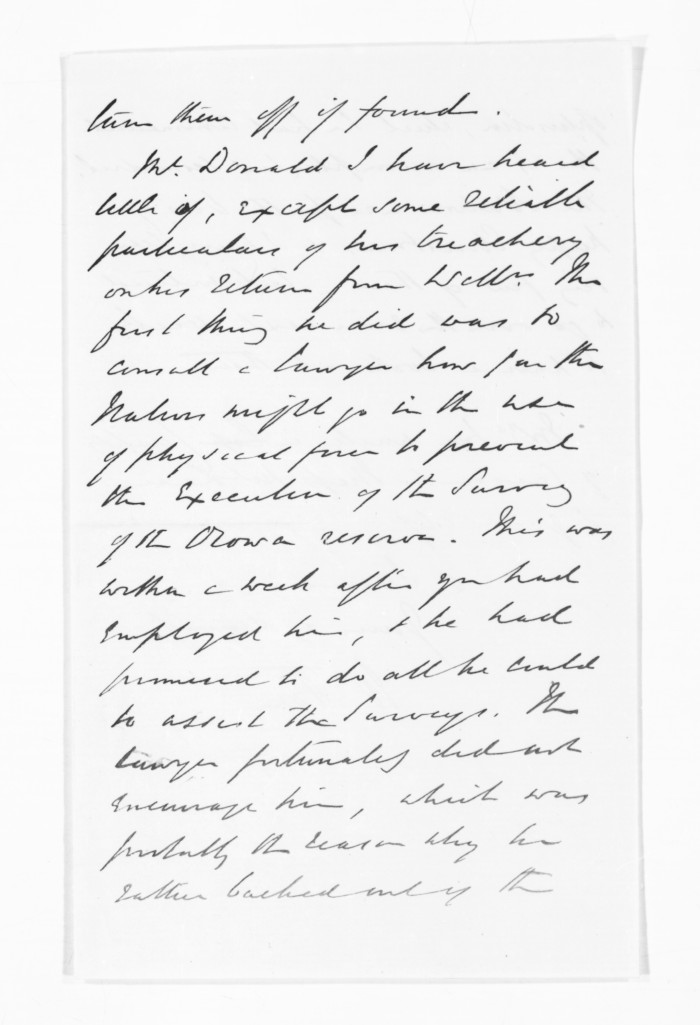 turn them off if found.
McDonald I have heard
little of, except some reliable
particulars of his treachery
on his return from Welln. The
first thing he did was to
consult a lawyer how far the
Natives might go in the use
of physical force to prevent
the Execution of the Survey
of the Orowa reserve. This was
within a week after you had
Employed him, & he had
promised to do all he could
to assist the Surveys. The
lawyer fortunately did not
encourage him, which was
probably the reason why he
rather backed out of the